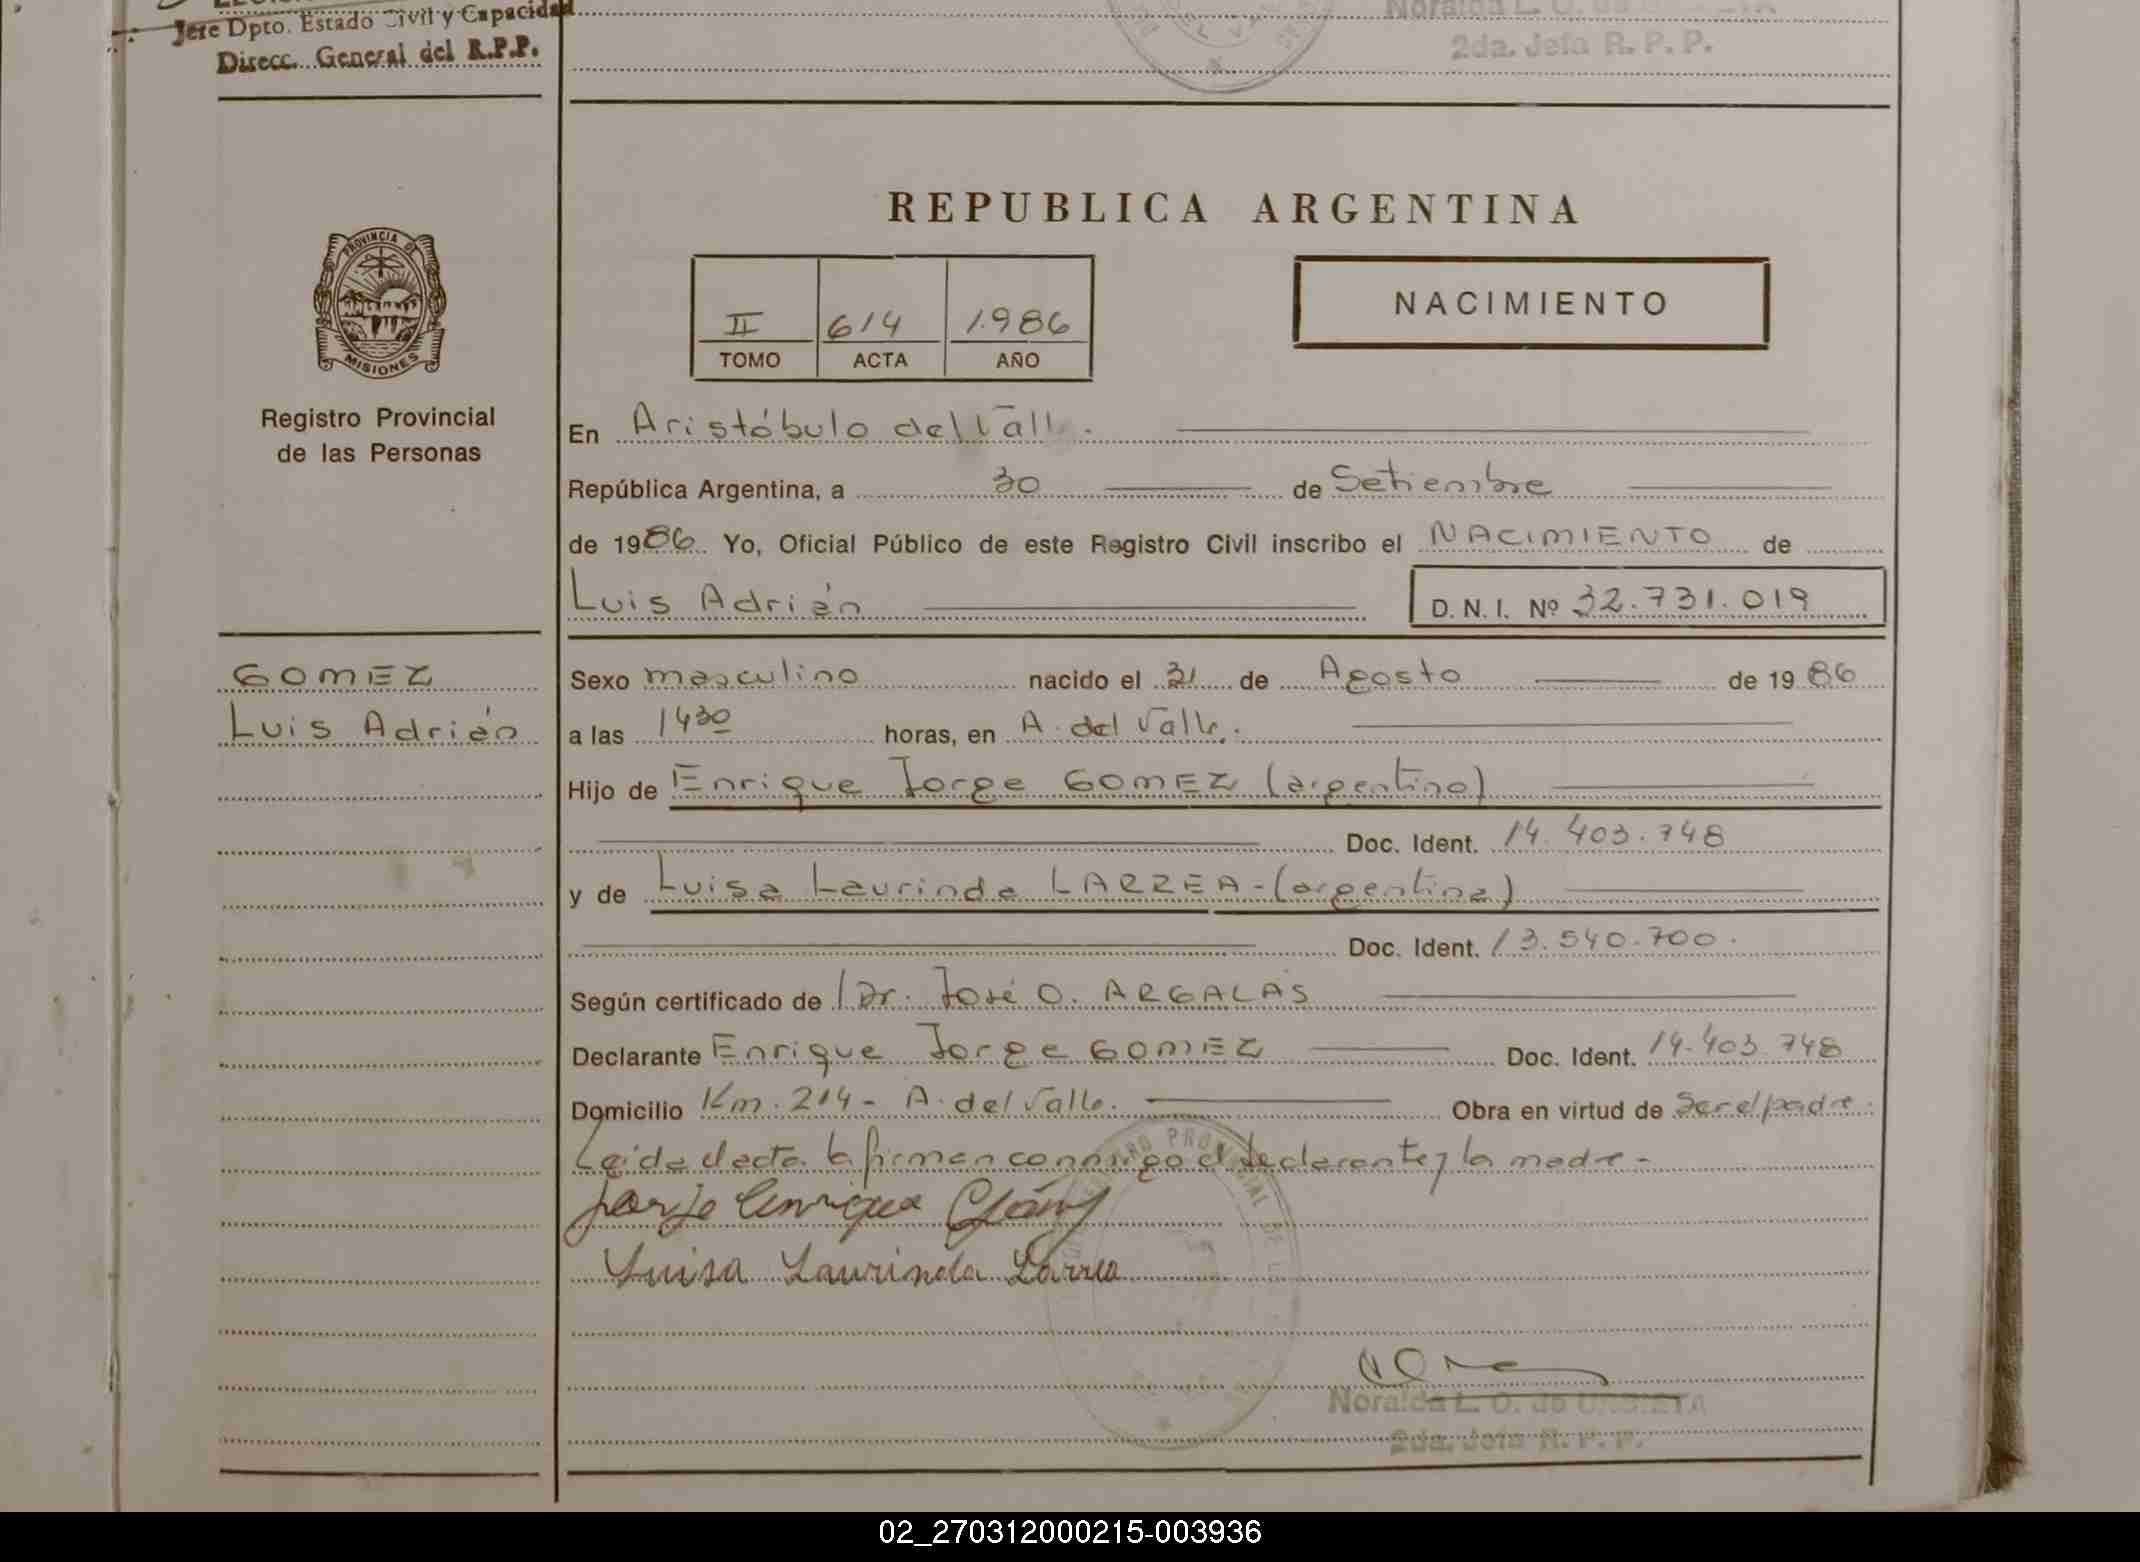 Jefe Dpto. Estado Civil y Capacidad
Direcc. General del R.P.P.
2da. Jefa R. P. P.
REPUBLICA ARGENTINA
PROVINCIA DE
MISIONES
Registro Provincial
de las Personas
II 614 1986
TOMO ACTA AÑO
NACIMIENTO
En Aristóbulo del Valle.
República Argentina, a 30 de Setiembre
de 1986 Yo, Oficial Público de este Registro Civil inscribo el NACIMIENTO de
Luis Adrián D. N. I. Nº 32.731.019
GOMEZ
Luis Adrián
Sexo masculino nacido el 31 de Agosto de 1986
a las 1430 horas, en A. del Valle.
Hijo de Enrique Jorge GOMEZ (argentino)
Doc. Ident. 14.403.748
y de Luisa Laurinda LARREA - (argentina)
Doc. Ident. 13.540.700.
Según certificado de Dr. José O. ARGALAS
Declarante Enrique Jorge GOMEZ Doc. Ident. 14.403.748
Domicilio Km. 214 - A. del Valle. Obra en virtud de Ser el padre.
Leída el acta la firman conmigo el declarante y la madre -
Jorje Enrique
Luisa Laurinda Larrea
Noralda L. O. de
2da. Jefa R. P. P.
02_270312000215-003936